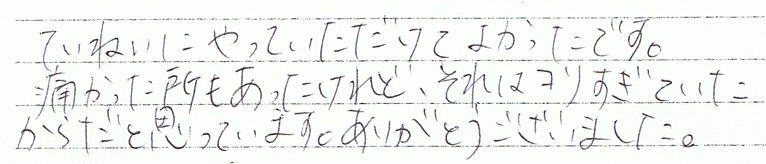 ていねいにやっていただけてよかったです。
痛かった所もあったけれど、それはコリすぎていた
からだと思っています。ありがとうございました。